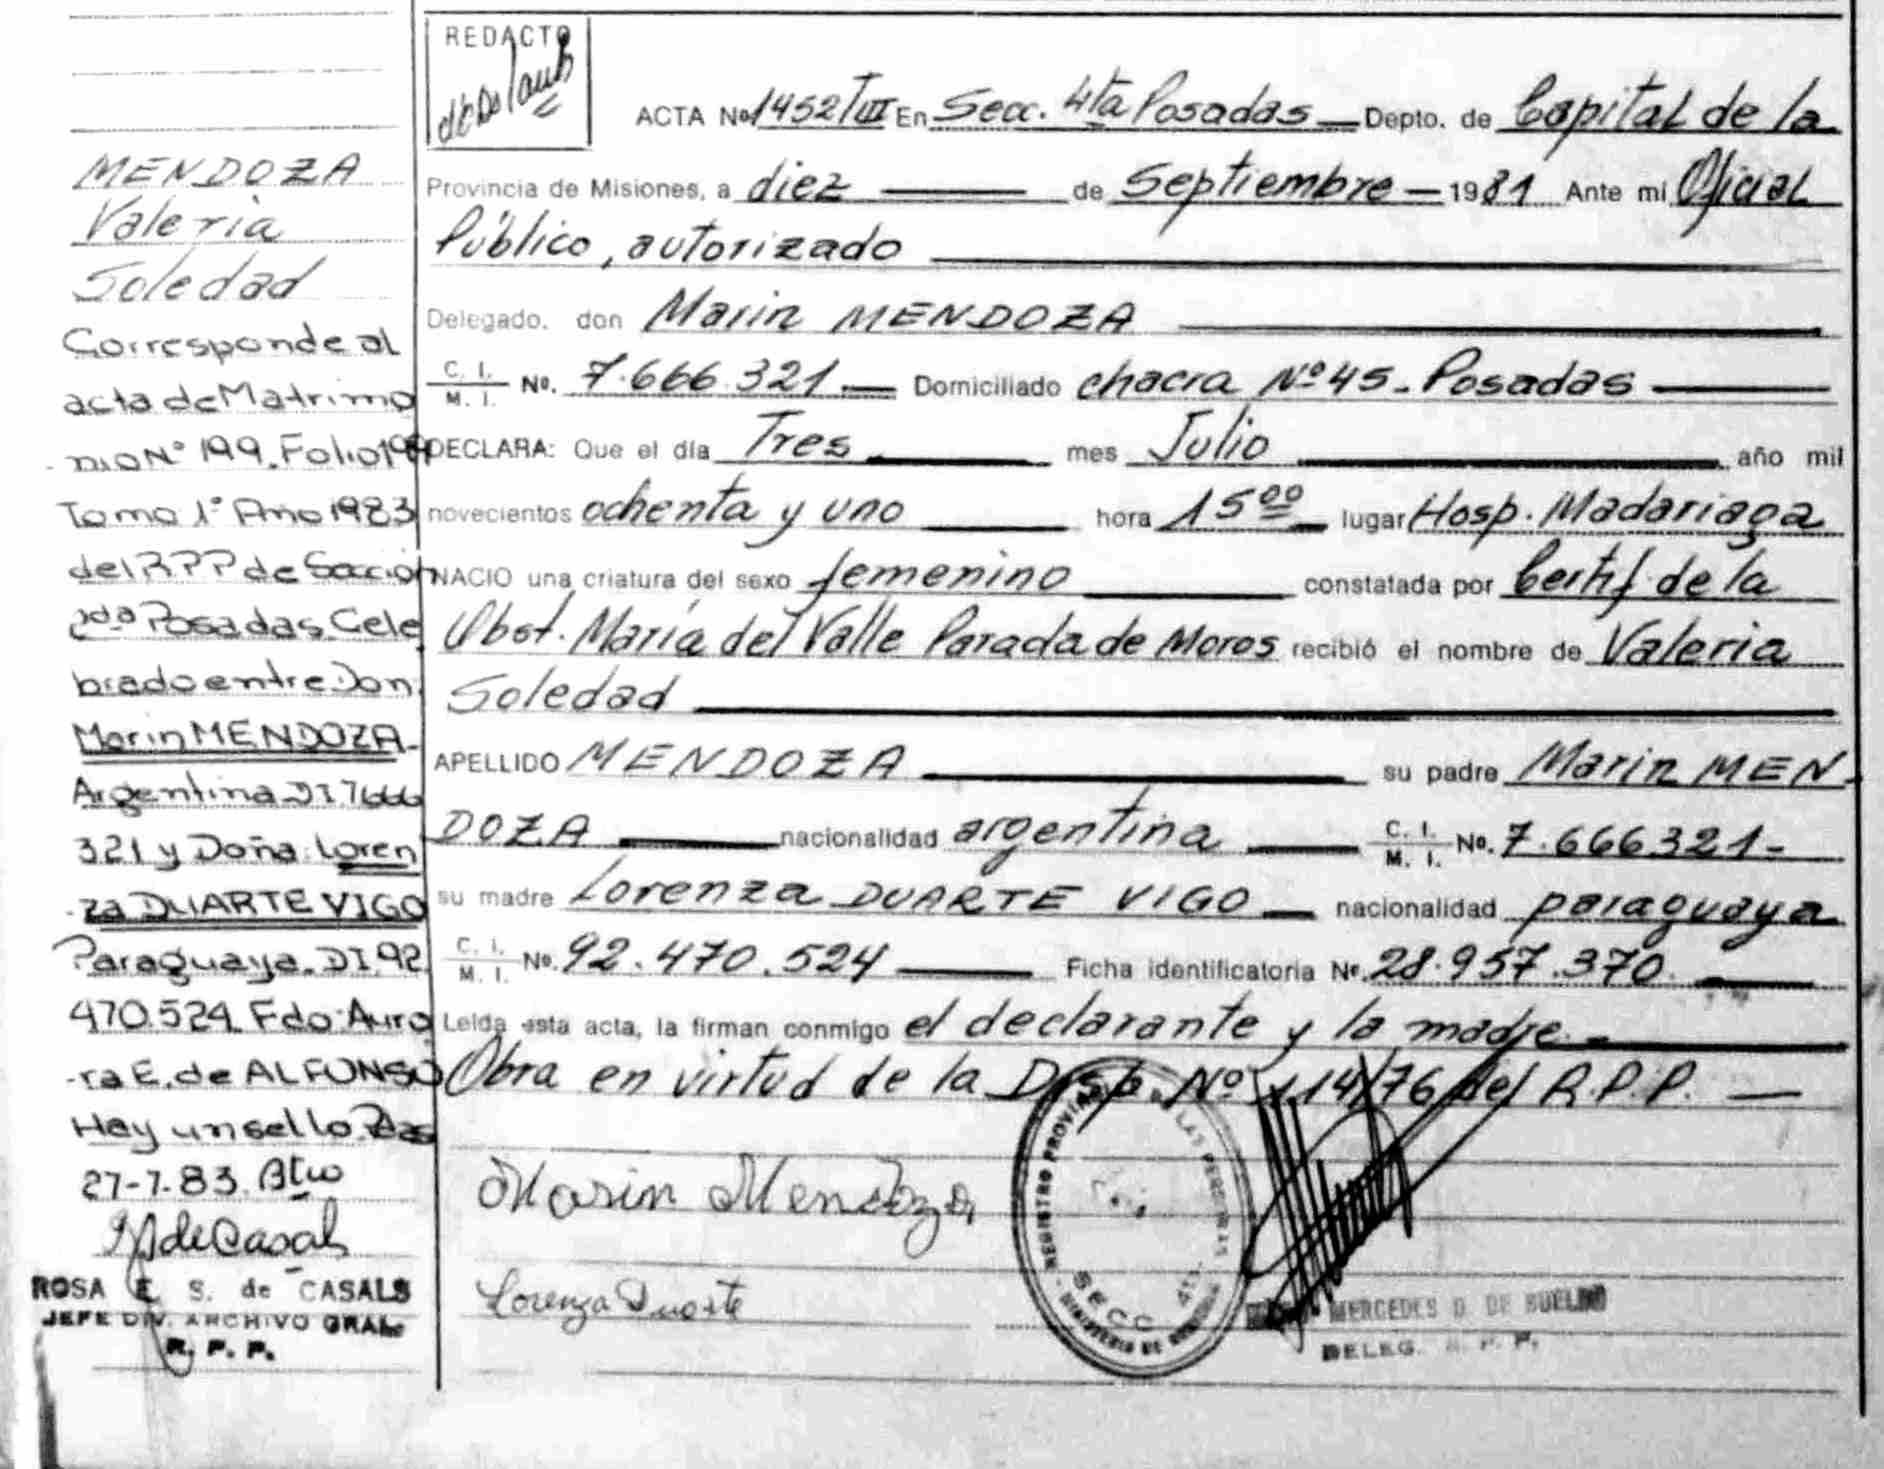 MENDOZA
Valeria
Soledad
Corresponde al
acta de Matrimo
nio N° 199. Folio 199
Tomo 1° Año 1983
del R.P.P de Sección
2da Posadas. Cele
brado entre Don
Marin MENDOZA-
Argentina DI. 7666
321 y Doña: Loren
-za DUARTE VIGO
Paraguaya. DI. 92
470.524. Fdo: Auro
-ra E. de ALFONSO
Hay un sello. Pdas
27-7-83.
ROSA E. S. de CASALS
JEFE DIV. ARCHIVO GRAL.
R. P. P.
REDACTO
ACTA No 1452 TIII En Secc. 4ta Posadas — Depto. de Capital de la
Provincia de Misiones, a diez — de Septiembre — 1981 Ante mi Oficial
Público, autorizado
Delegado. don Marin MENDOZA
C. I. / M. I. No. 7.666.321 — Domiciliado chacra Nº 45 - Posadas
DECLARA: Que el día Tres mes Julio año mil
novecientos ochenta y uno hora 15 00 lugar Hosp. Madariaga
NACIO una criatura del sexo femenino constatada por Certif. de la
Obst. María del Valle Parada de Moros recibió el nombre de Valeria
Soledad
APELLIDO MENDOZA su padre Marin MEN-
DOZA nacionalidad argentina C. I. / M. I. No. 7.666321-
su madre Lorenza DUARTE VIGO nacionalidad paraguaya
C. I. / M. I. No. 92.470.524 Ficha identificatoria No. 28.957.370
Leída esta acta, la firman conmigo el declarante y la madre.
Obra en virtud de la Disp. Nº 114/76 del R.P.P.
Marin Mendoza
Lorenza Duarte
REGISTRO PROVINCIAL DE LAS PERSONAS
SECC. 4ta.
MERCEDES D. DE
DELEG. R. P. P.